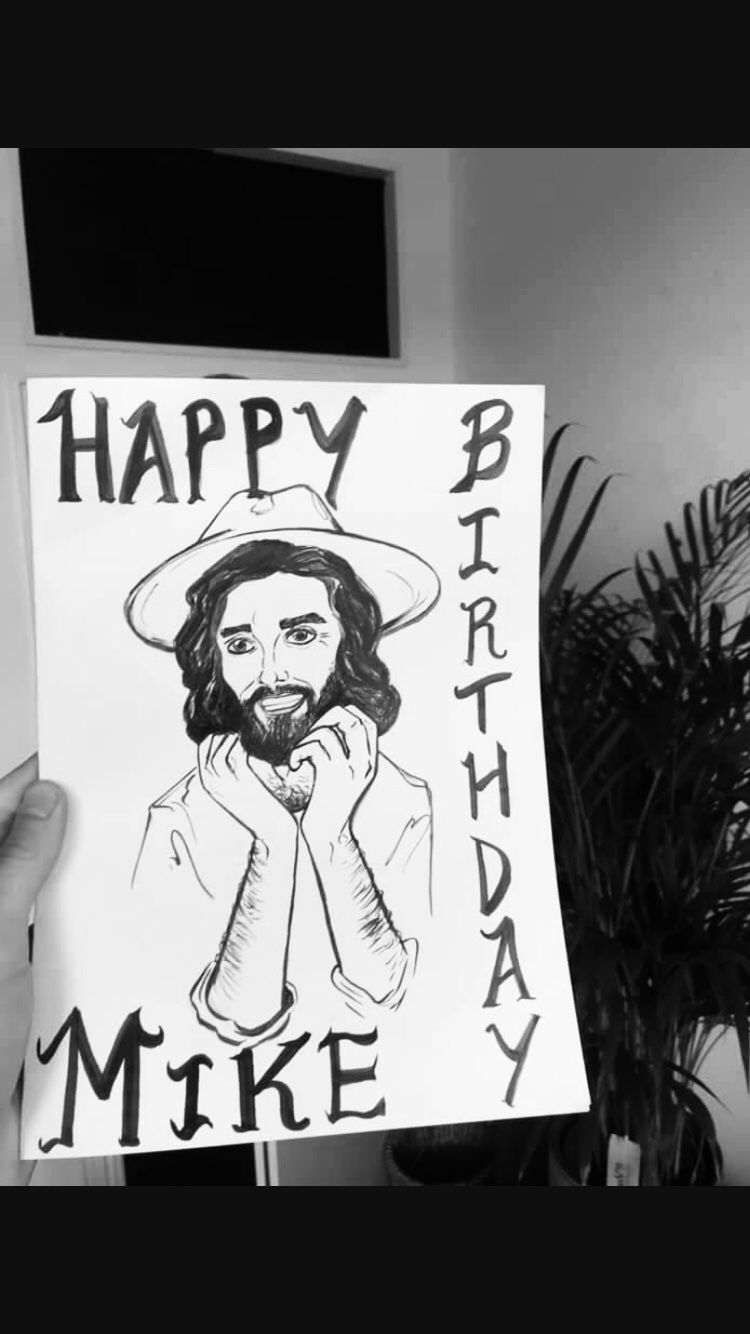 HAPPY
BIRTHDAY
MIKE